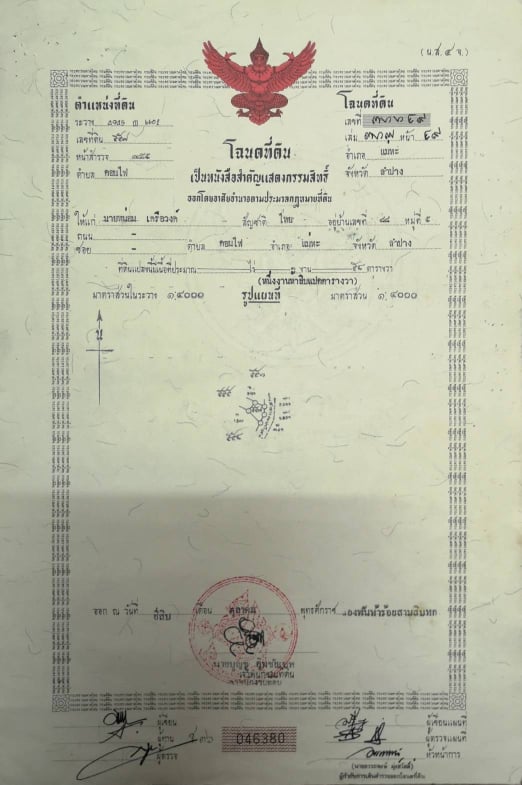 (น.ส.๔ จ.)
ตำแหน่งที่ดิน
ระวาง
เลขที่ดิน
หน้าสำรวจ
ตำบล ดอนไฟ
โฉนดที่ดิน
เลขที่
เล่ม หน้า ๔๙
อำเภอ แม่ทะ
จังหวัด ลำปาง
โฉนดที่ดิน
เป็นหนังสือสำคัญแสดงกรรมสิทธิ์
ออกโดยอาศัยอำนาจตามประมวลกฎหมายที่ดิน
ให้แก่ นายหน่อม เครือวงค์ สัญชาติ ไทย อยู่บ้านเลขที่ ๘๘ หมู่ที่ ๕
ถนน - ตำบล ดอนไฟ อำเภอ แม่ทะ จังหวัด ลำปาง
ซอย -
ที่ดินแปลงนี้มีเนื้อที่ประมาณ - ไร่ ๑ งาน ๕๘ ตารางวา
(หนึ่งงานห้าสิบแปดตารางวา)
มาตราส่วนในระวาง ๑:๔๐๐๐ รูปแผนที่ มาตราส่วน ๑:๔๐๐๐
น
ออก ณ วันที่ ยี่สิบ เดือน ตุลาคม พุทธศักราช สองพันห้าร้อยสามสิบหก
เจ้าพนักงานที่ดิน
ผู้เขียน
ผู้ทาน
ผู้ตรวจ
046380
ผู้เขียนแผนที่
ผู้ตรวจแผนที่
หัวหน้าการ